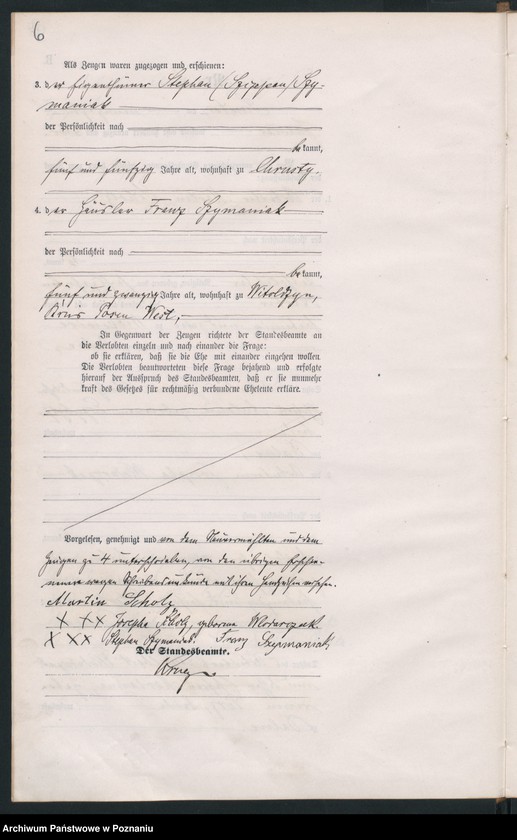 6
Als Zeugen waren zugezogen und erschienen:
3. der Eigenthümer Stephan (Szczepan) Szy-
maniak
der Persönlichkeit nach
bekannt,
fünf und fünfzig Jahre alt, wohnhaft zu Chrusty.
4. der Häusler Franz Szymaniak
der Persönlichkeit nach
bekannt,
fünf und zwanzig Jahre alt, wohnhaft zu Witoldzyn,
Kreis Posen West,
In Gegenwart der Zeugen richtete der Standesbeamte an
die Verlobten einzeln und nach einander die Frage:
ob sie erklären, daß sie die Ehe mit einander eingehen wollen.
Die Verlobten beantworteten diese Frage bejahend und erfolgte
hierauf der Ausspruch des Standesbeamten, daß er sie nunmehr
kraft des Gesetzes für rechtmäßig verbundene Eheleute erkläre.
Vorgelesen, genehmigt und von dem Neuvermählten und dem
Zeugen zu 4 unterschrieben, von den übrigen Erschie-
nenen wegen Schreibensunkunde mit ihrem Handzeichen versehen.
Martin Scholz
X XX Josepha Scholz, geborene
X XX Stephan Franz Szymaniak
Der Standesbeamte.
Archiwum Państwowe w Poznaniu